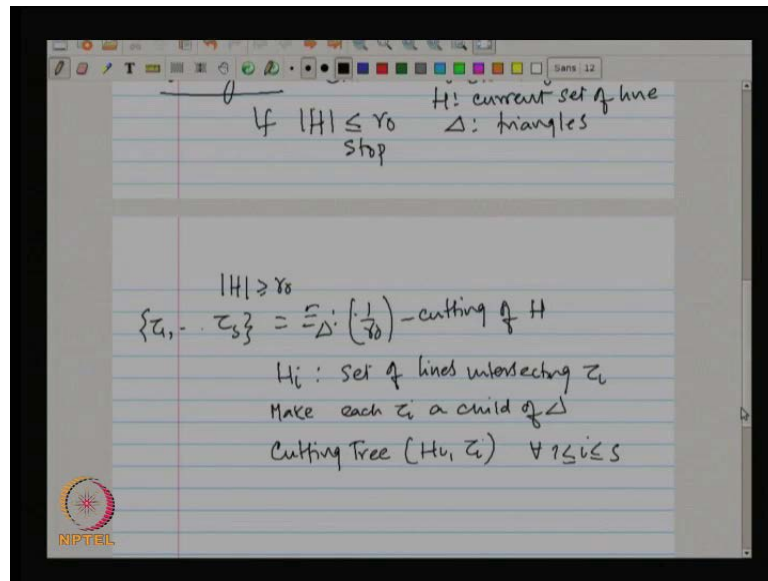 Sans 12
H: current set of line
If |H| ≤ r₀ Δ: triangles
Stop
|H| ≥ r₀
{τ₁, .. τₛ} = Ξ_Δ: (1/r₀) - cutting of H
Hᵢ : set of lines intersecting τᵢ
Make each τᵢ a child of Δ
Cutting Tree (Hᵢ, τᵢ) ∀ 1≤i≤s
NPTEL